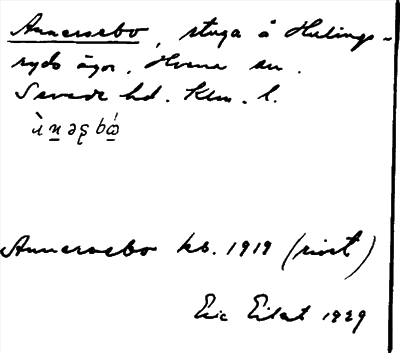 Annersebo, stuga å Hulings-
ryds ägor. Hvena sn.
Sevede hd. Klm. l.
ànəʂbώ
Annersebo kb. 1919 (rivet)
Eric Eilert 1929